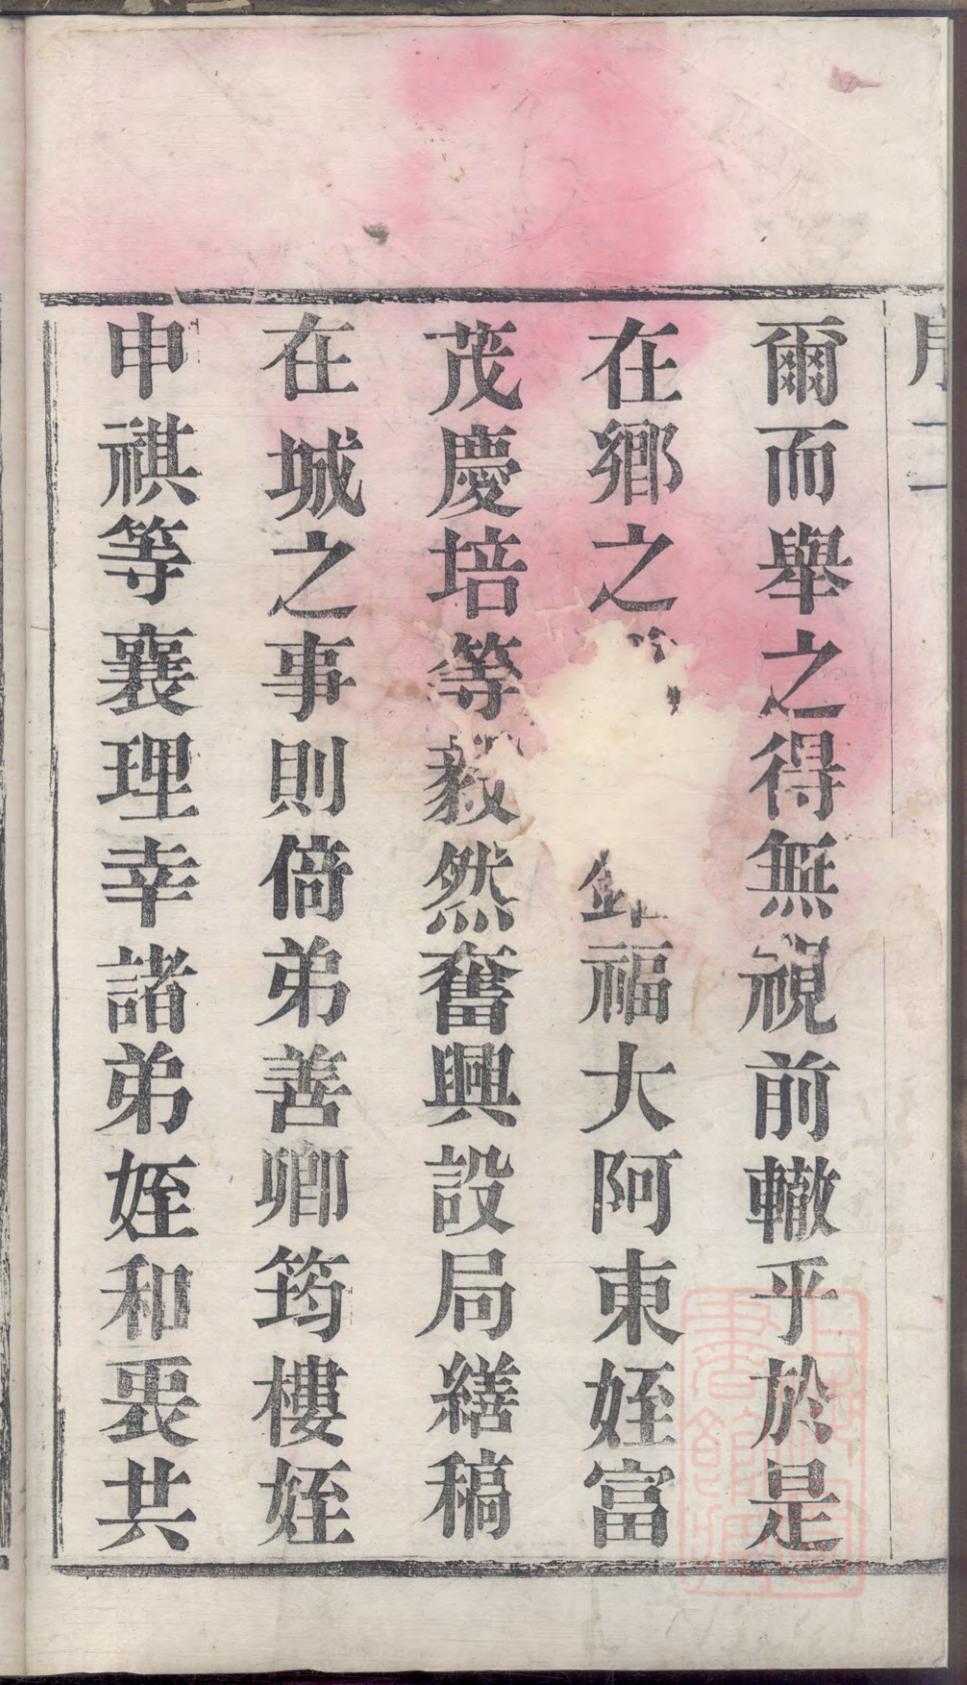 序二
爾而舉之得無視前轍乎於是
在鄉之福大阿東姪富
茂慶培等毅然奮興設局繕稿
在城之事則倚弟善卿筠樓姪
申祺等襄理幸諸弟姪和衷共